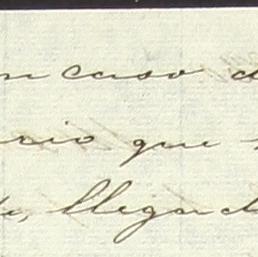 n caso d
rio que
de, llegand